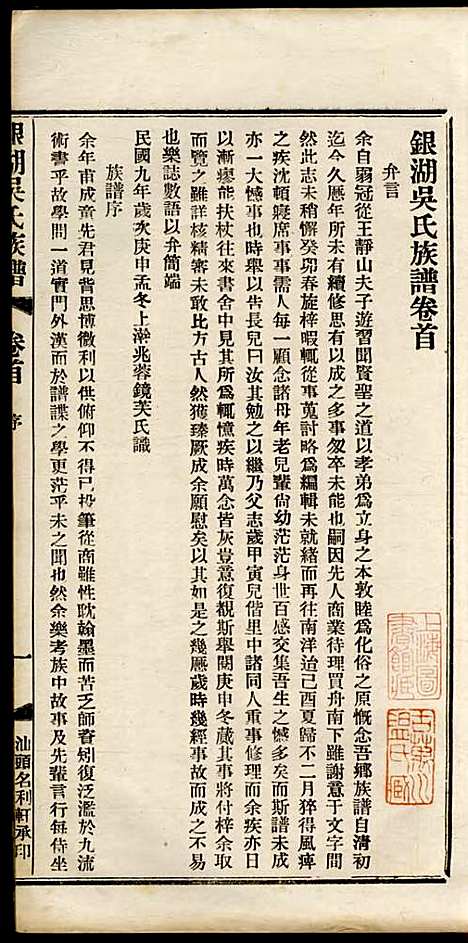 銀湖吳氏族譜卷首
弁言
余自弱冠從王靜山夫子遊習聞賢聖之道以孝弟為立身之本敦睦為化俗之原慨念吾鄉族譜自清初
迄今久曆年所未有續修思有以成之多事匆卒未能也嗣因先人商業待理買舟南下雖謝薏于文字間
然此志未稍懈癸卯春旋梓暇輒從事蒐討略為編輯未就緒而再往南洋治己酉夏歸不二月猝得風痺
之疾沈頓寢席事事需人每一顧念諸母年老兒輩尚幼茫茫身世百感交集吾生之憾多矣而斯譜未成
亦一大憾事也時舉以告長兒曰汝其勉之以繼乃父志歲甲寅兒偕里中諸同人重事修理而余疾亦日
以漸瘳能扶杖往來書舍中見其所為輒憶疾時萬念皆灰豈意復覩斯舉閱庚申冬蕆其事將付梓余取
而覽之雖詳核精審未敢即比方古人然獲臻厥成余願慰矣以其如是之幾厯歲時幾經事故而成之不易
也樂誌數語以弁簡端
民國九年歲次庚申孟冬上澣兆蓉鏡芙氏識
族譜序
余年甫成童先君見背思博微利以供俯仰不得已投筆從商雖性耽翰墨而苦乏師資矧復泛濫於九流
術書乎故學問一道實門外漢而於譜諜之學更茫乎未之聞也然余樂考族中故事及先輩言行每侍坐
銀湖吳氏族譜
卷首
序
一
汕頭名利軒承印
上海圖
書館藏